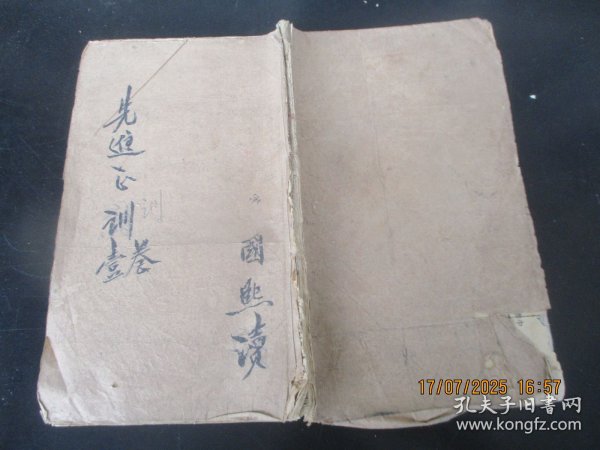 先進正訓
壹卷
訓
國熙讀
17/07/2025 16:57
孔夫子旧书网
www.kongfz.com